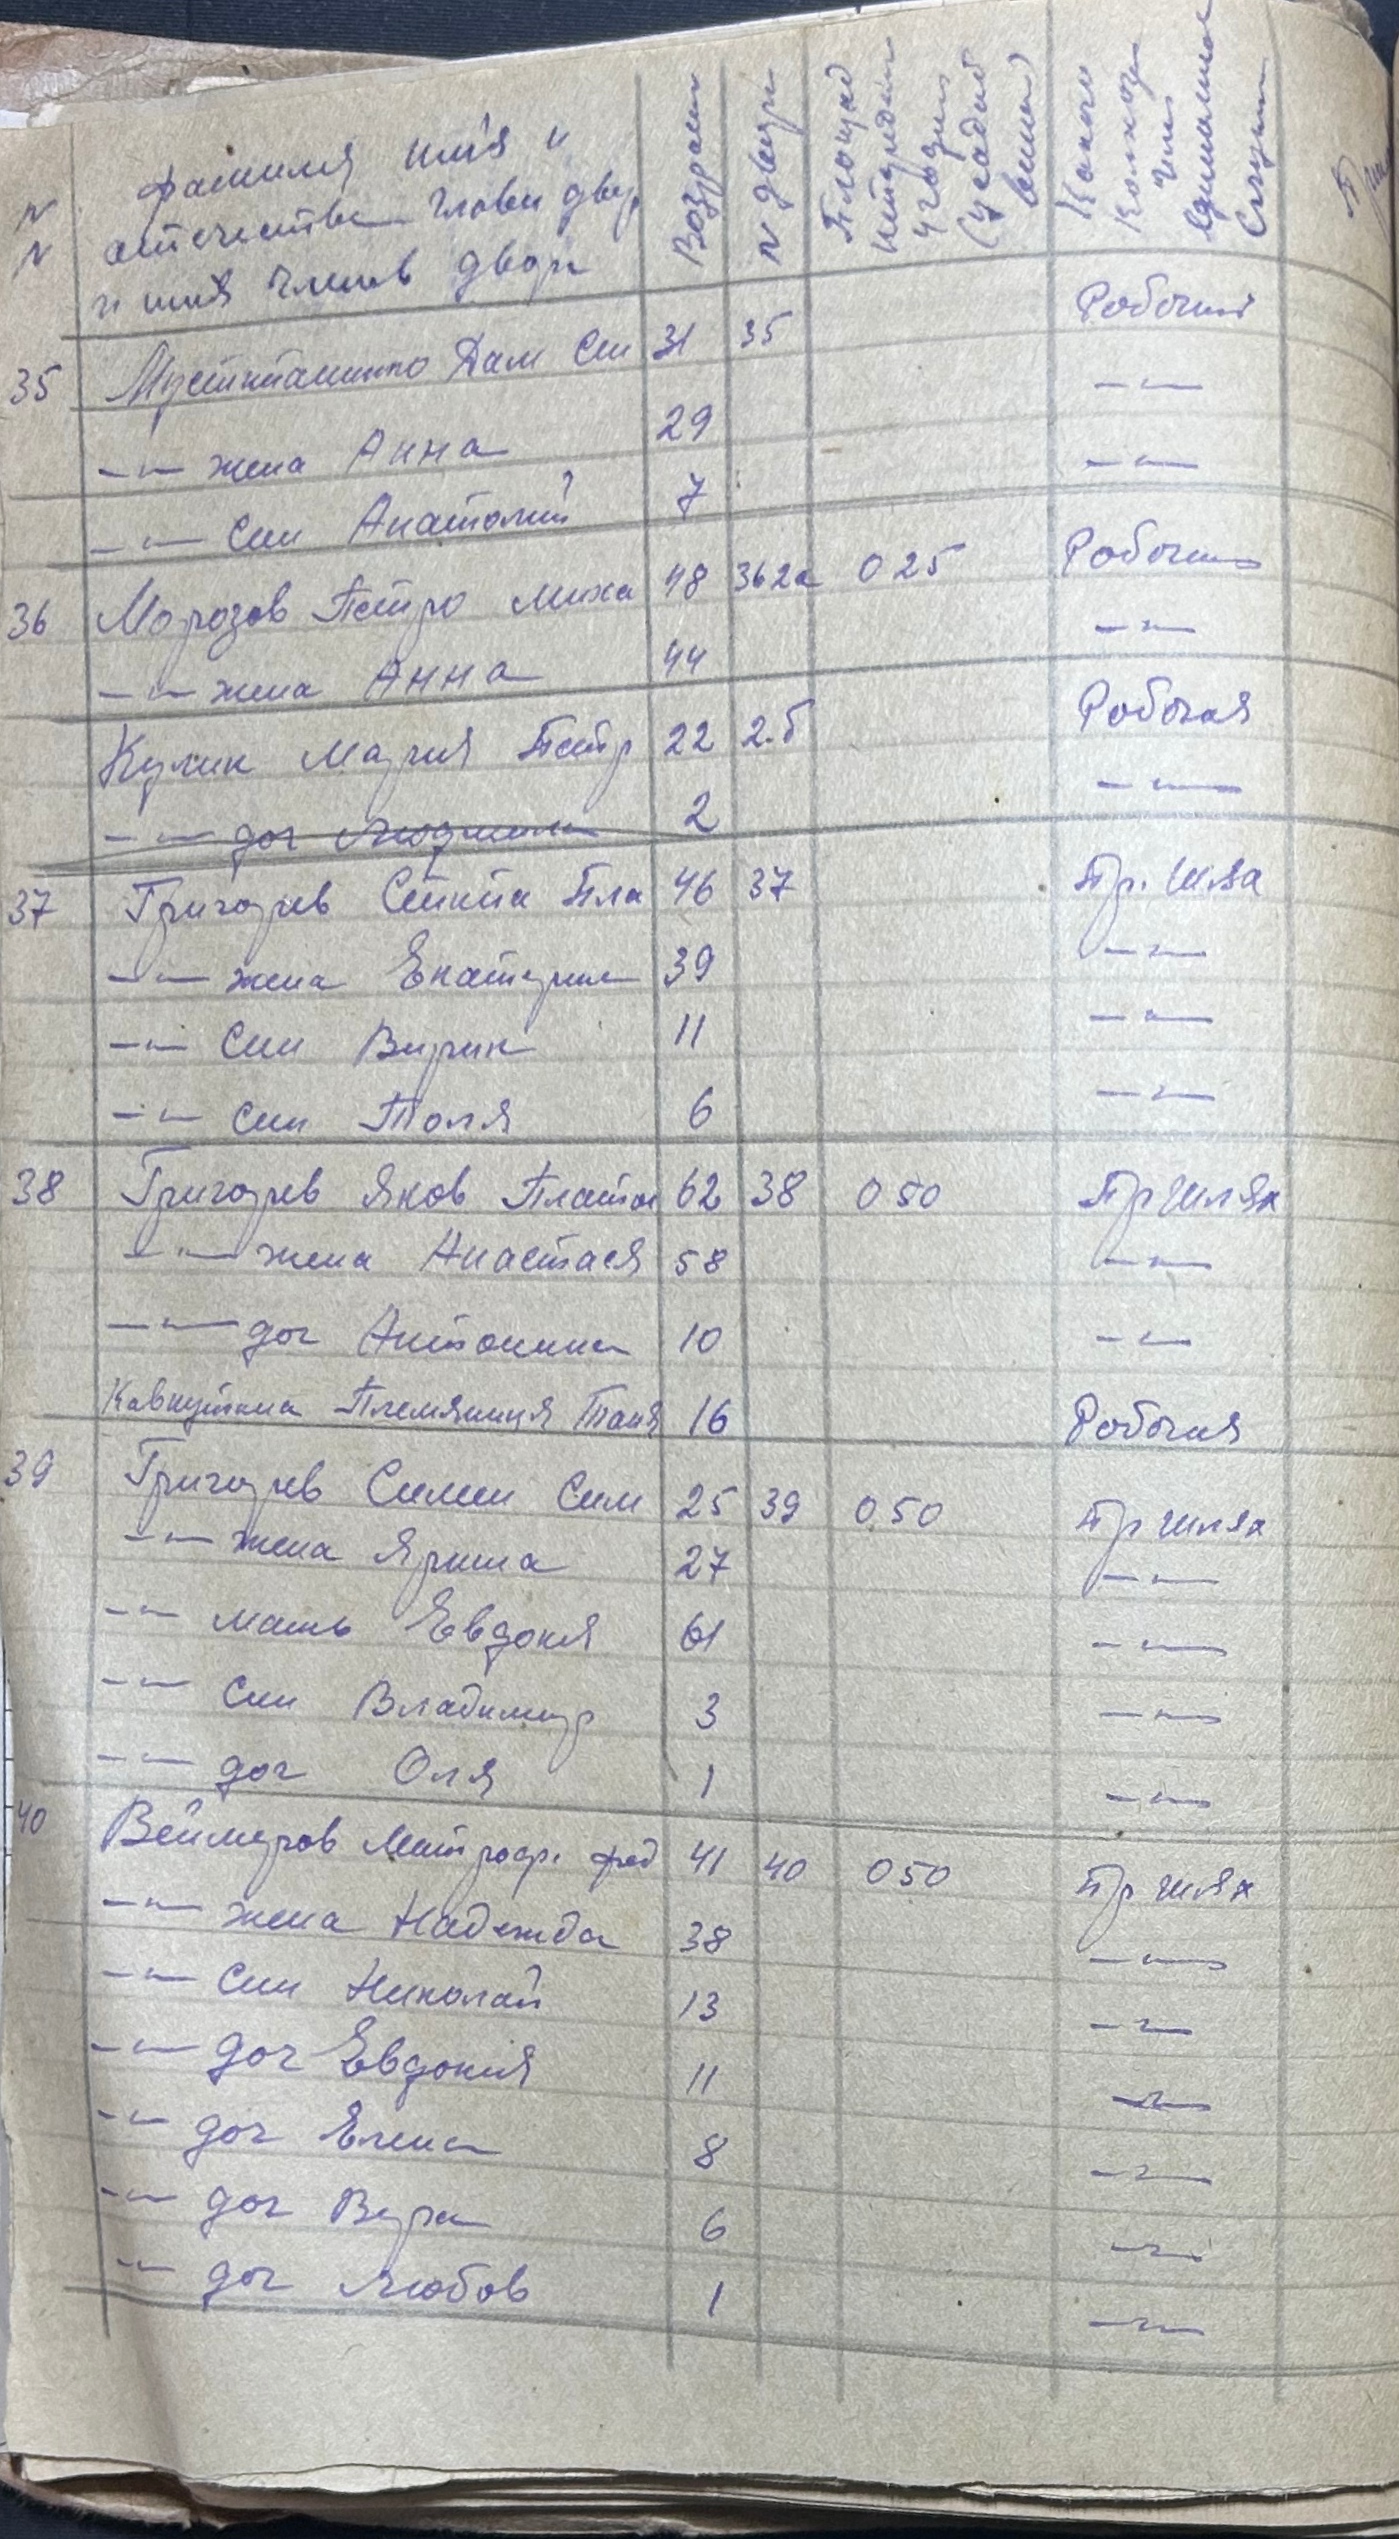 N N
фамилия имя и
отечество главы двор
и имя членов двора
Возраст
N двора
Площад
(усадеб
Какого
колхоза
или
единолич
Робочий
35 Дам Сем 31 35 -"-
-"- жена Анна 29 -"-
-"- син Анатолий 7
36 Морозов Петро миха 48 36 2а 0 25 Робочий
-"- жена Анна 44 -"-
Кулик Мария Петр 22 2.б Робочая
-"- доч Людмила 2 -"-
37 Григорев Пла 46 37 Пр. Шлях
-"- жена Екатерина 39 -"-
-"- син 11 -"-
-"- син Толя 6 -"-
38 Григорев Яков Платон 62 38 0 50 Пр Шлях
-"- жена Анастася 58 -"-
-"- доч Антонина 10 -"-
Племяниця Таня 16 Робочая
39 Григорев Семен Сем 25 39 0 50 Пр шлях
-"- жена Ярина 27 -"-
-"- мать Евдокия 61 -"-
-"- син Владимир 3 -"-
-"- доч Оля 1 -"-
40 Митроф. фед 41 40 0 50 Пр шлях
-"- жена Надежда 38 -"-
-"- син Николай 13 -"-
-"- доч Евдокия 11 -"-
-"- доч Елена 8 -"-
-"- доч Вера 6 -"-
-"- доч Любов 1 -"-